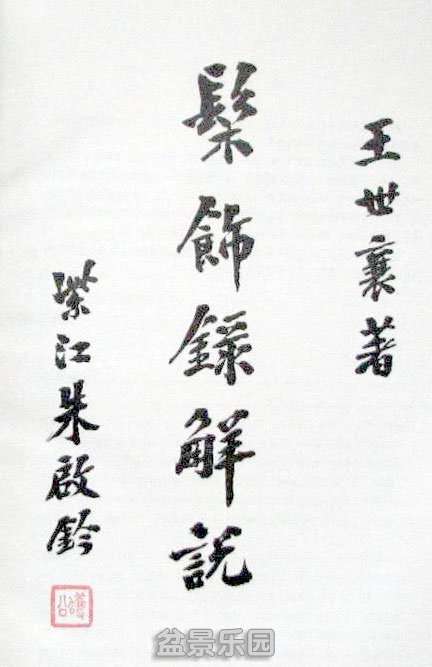 王世襄著
髹飾錄解說
紫江朱啟鈐
盆景乐园